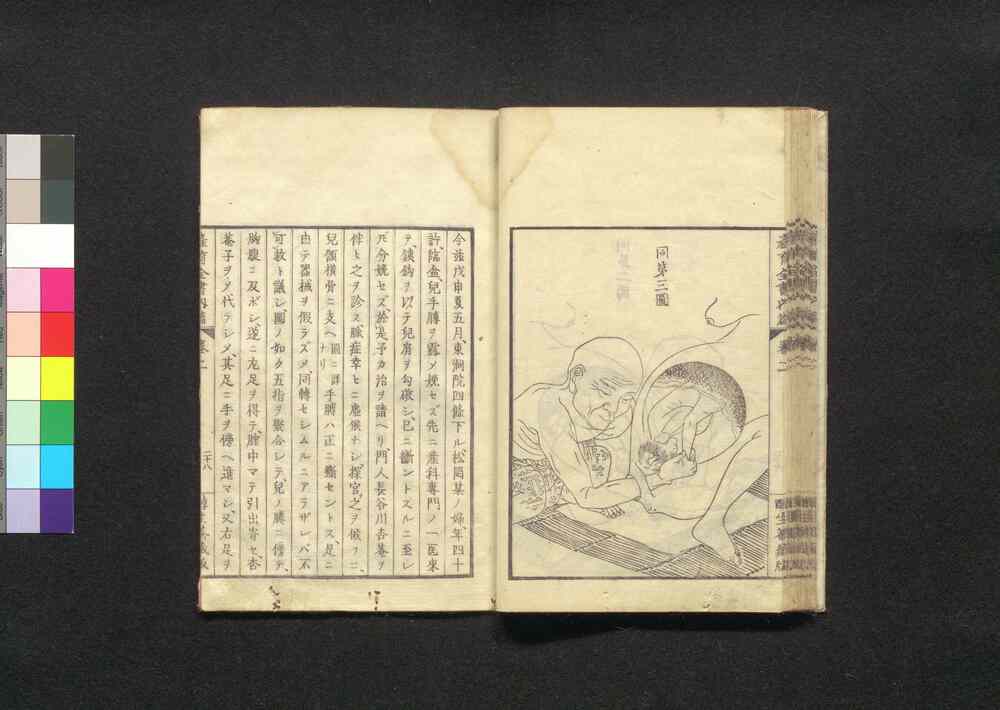 同第三圖
今茲戊申夏五月、東洞院四條下ル松岡某ノ婦、年四十
許、臨盆、兒手膊ヲ露メ娩セズ先ニ産科專門ノ一医來
テ、鐵鉤ヲ以テ兒肩ヲ勾做シ、已ニ斷ントスルニ至レ
𪜈分娩セズ、於是予カ治ヲ請ヘリ門人長谷川杏菴ヲ
伴ヒ之ヲ診ス、脈症幸ヒニ虚候ナシ、探宮之ヲ候フニ、
兒頷横骨ニ支ヘ圖ニ詳ナリ手膊ハ正ニ斷セントス、是ニ
由テ器械ヲ假ラズメ、回轉セシムルニアラザレバ不
可救ト議シ圖ノ如ク五指ヲ聚合シテ、兒ノ腰ニ傍テ、
胸腹ニ及ボシ、遂ニ左足ヲ得テ、膣中マテ引出寄セ、杏
菴子ヲメ代ラシメ、其足ニ手ヲ傍ヘ進マシ、又右足ヲ